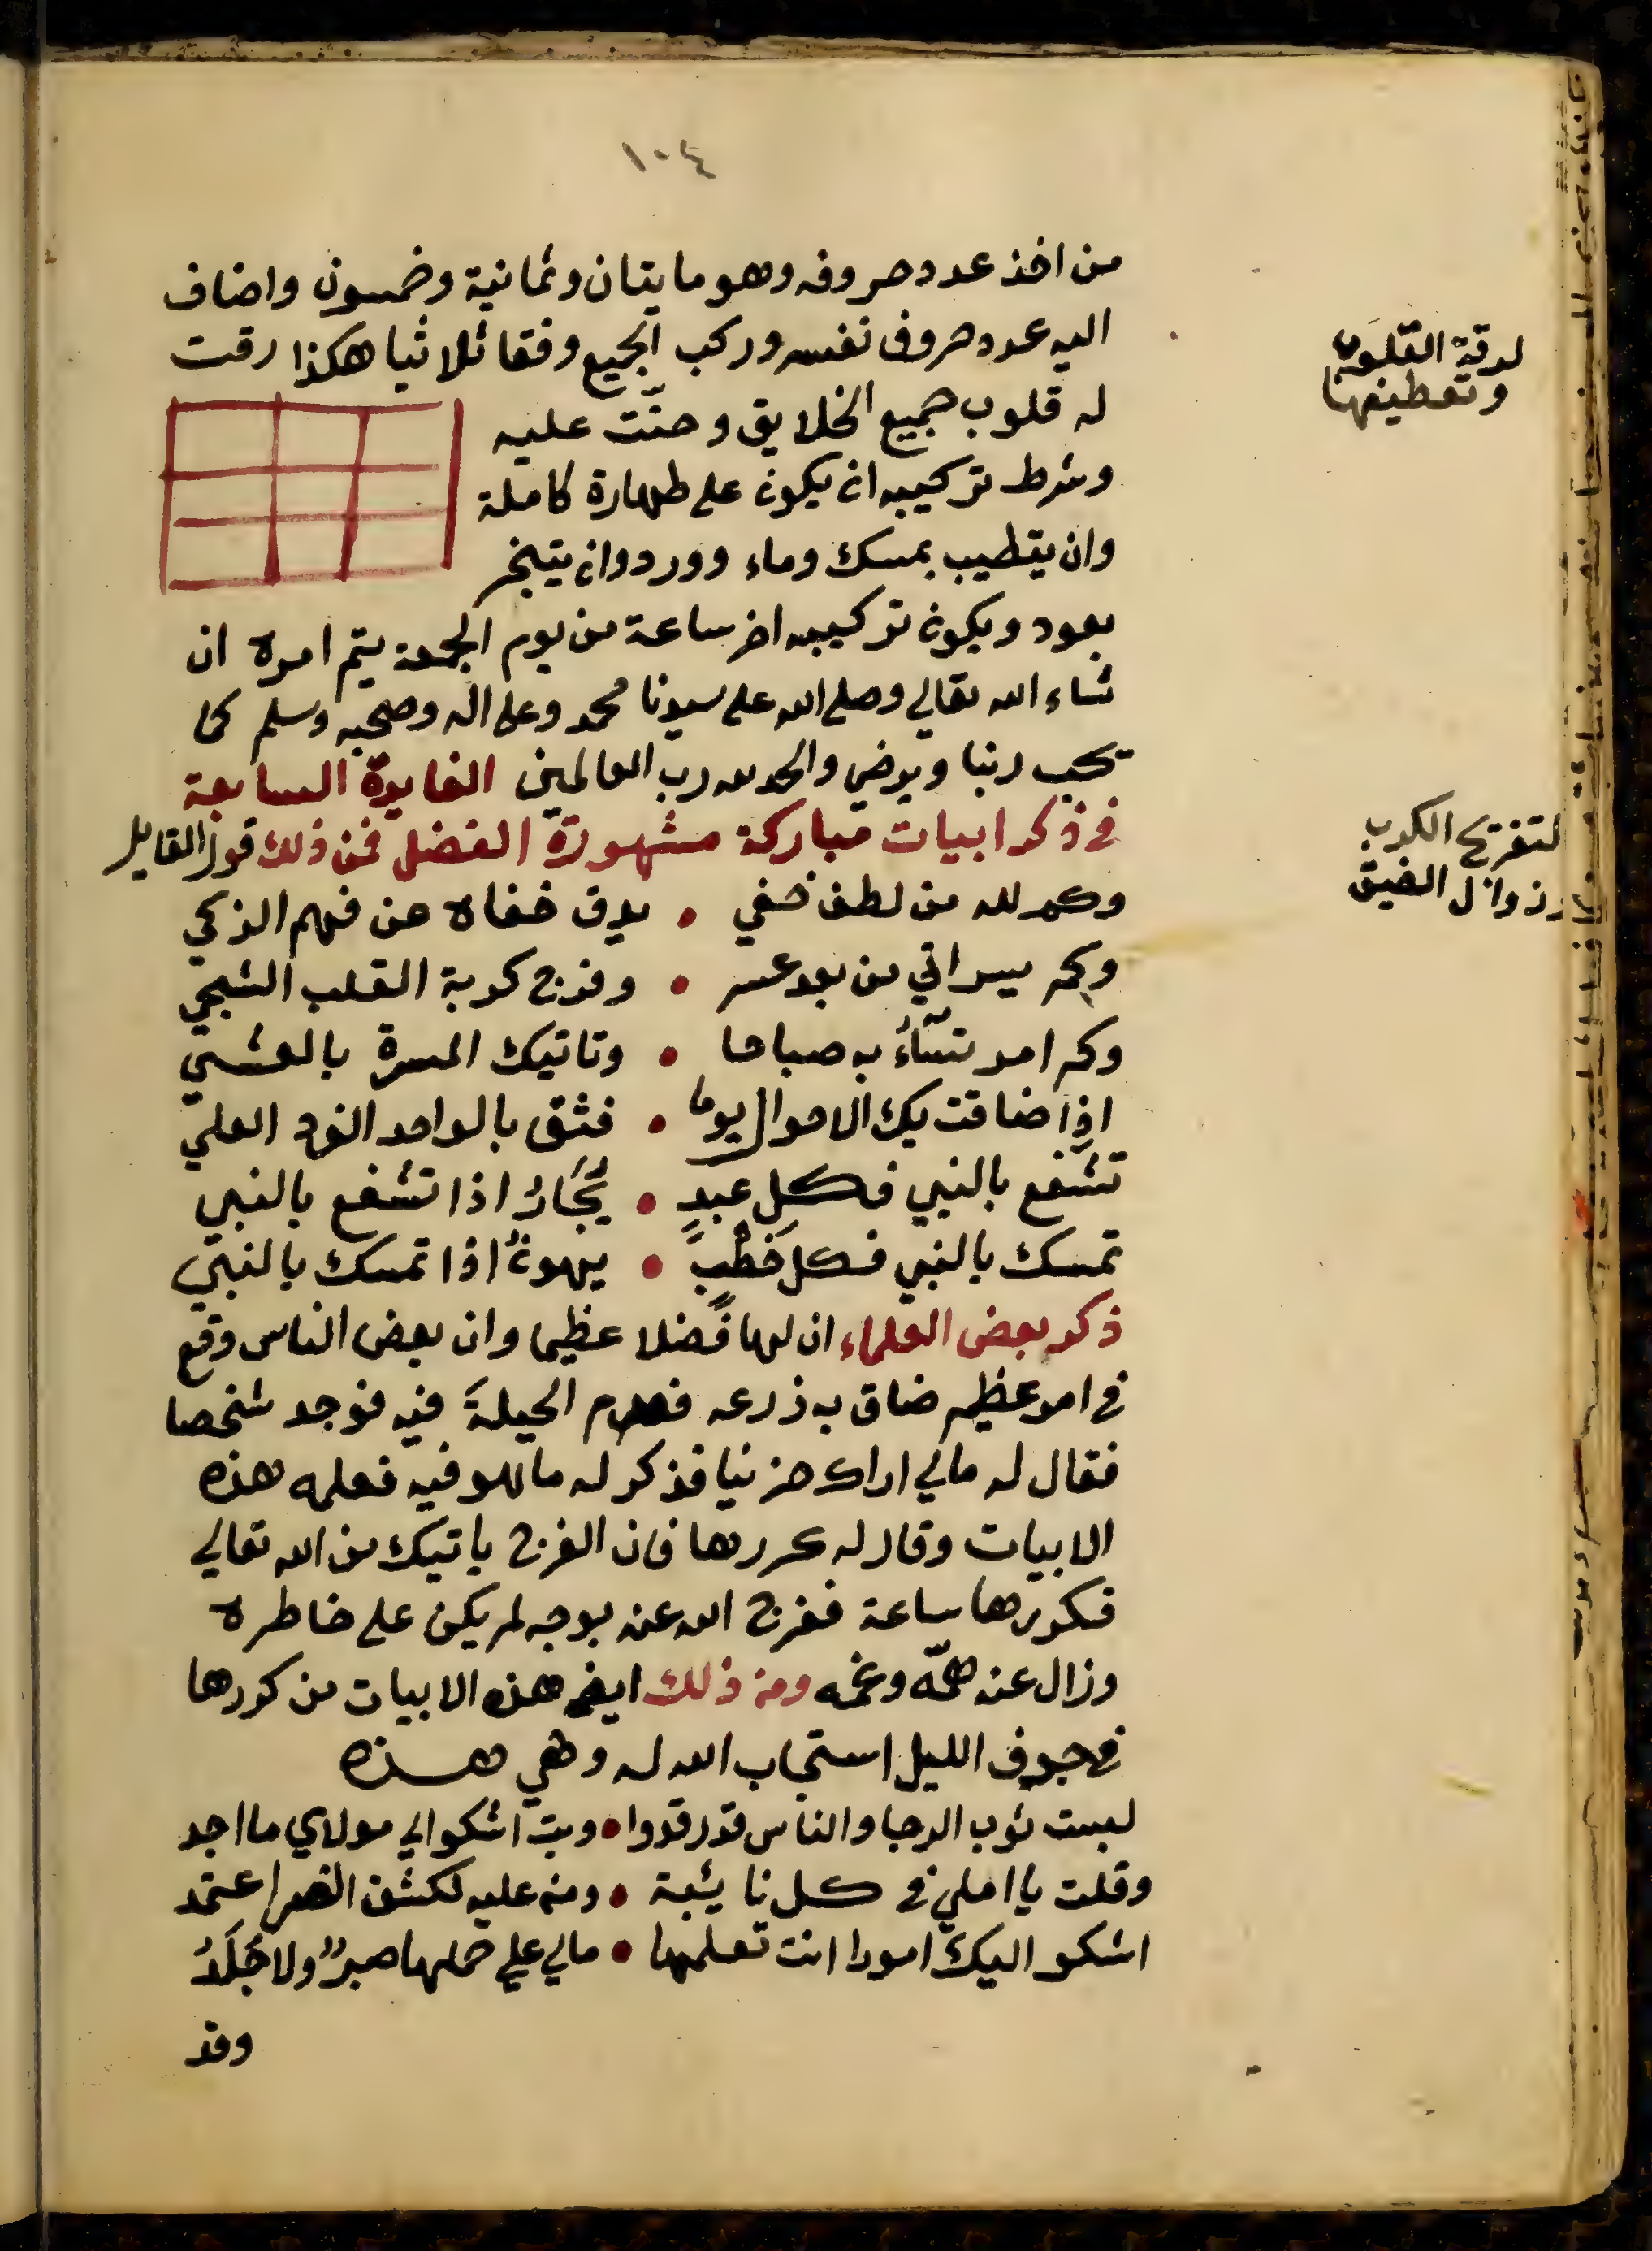 ١٠٤
من اخذ عدد حروفه وهو مايتان وثمانية وخمسون واضاف
اليه عدد حروف نفسه وركب الجميع وفقا ثلاثيا هكذا رقت
له قلوب جميع الخلايق وحنّت عليه
وشرط تركيبه ان يكون على طهارة كاملة
وان يتطيب بمسك وماء وورد وان يتبخر
بعود ويكون تركيبه اخر ساعة من يوم الجمعة يتم امره ان
شاء الله تعالي وصلي الله على سيدنا محمد وعلى اله وصحبه وسلم كما
يحب ربنا ويرضي والحمد لله رب العالمين الفايدة السابعة
في ذكر ابيات مباركة مشهورة الفضل فمن ذلك قول القايل
وكم لله من لطف خفي • يدق خفاه عن فهم الذكي
وكم يسر اتي من بعد عسر • وفرج كربة القلب الشجي
وكم امر تسَآءُ به صباحا • وتاتيك المسرة بالعشي
اذا ضاقت بك الاحوال يوما • فثق بالواحد الفرد العلي
تشفع بالنبي فكل عبدٍ • يُجَارُ اذا تشفع بالنبي
تمسك بالنبي فكل خَطْبٍ • يهونُ اذا تمسك بالنبي
ذكر بعض العلماء ان لها فضلا عظيما وان بعض الناس وقع
في امر عظيم ضاق به ذرعه فعدم الحيلةَ فيه فوجد شخصا
فقال له مالي اراك حزينا فذكر له ما هو فيه فعلمه هذه
الابيات وقال له كررها فان الفرج ياتيك من الله تعالي
فكررها ساعة ففرج الله عنه بوجه لم يكن على خاطره
وزال عنه همّه وغمه ومن ذلك ايضا هذه الابيات من كررها
في جوف الليل استجاب الله له وهي هذه
لبست ثوب الرجا والناس قد رقدوا • وبت اشكو الي مولاي ما اجد
وقلت يا املي في كل نايئبة • ومن عليه لكشف الضر اعتمد
اشكو اليك امورا انت تعلمها • مالي علي حملها صبرٌ ولا جَلَدُ
وقد
لرقة القلوب
وتعطيفها
لتفريج الكرب
وزوال الضيق